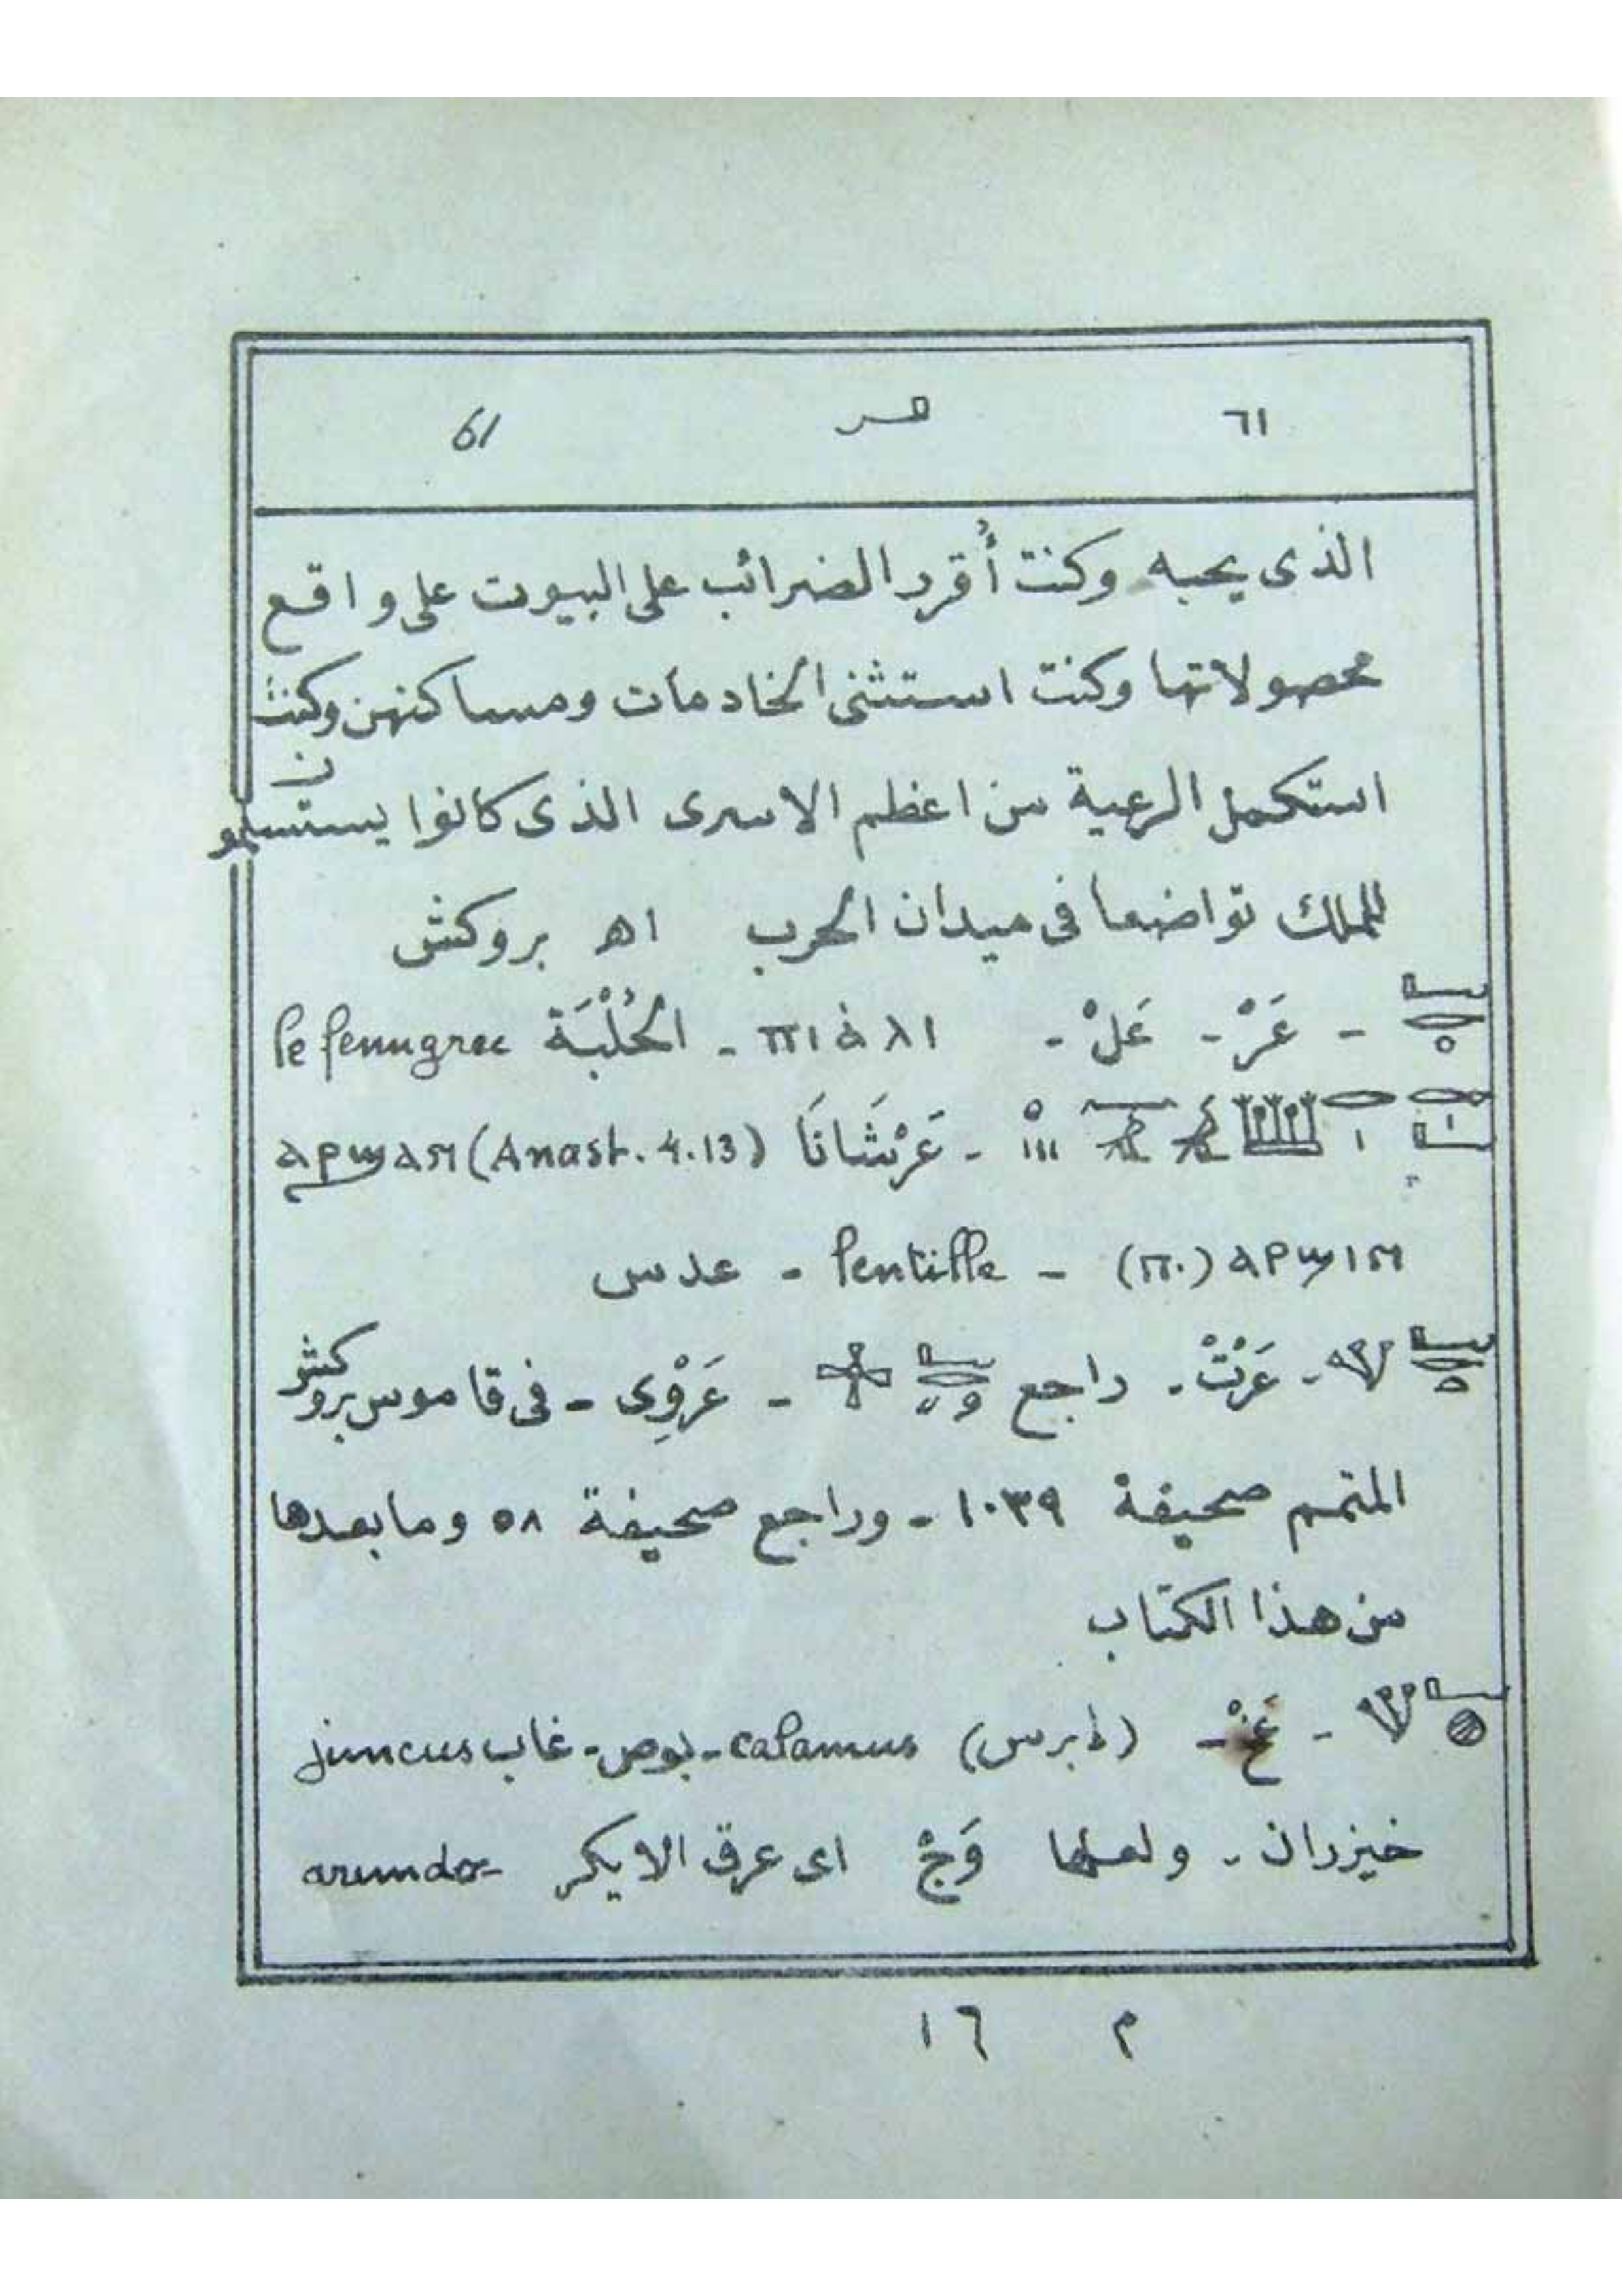 ٦١ 61
الذى يحبه وكنت أُقرر الضرائب على البيوت على واقع
محصولاتها وكنت استثنى الخادمات ومساكنهن وكنت
استكمل الرعية من اعظم الاسرى الذى كانوا يستسلمون
للملك تواضعا فى ميدان الحرب اهـ بروكش
- عَرْ - عَلْ - - الحُلْبَة le fenugrec
- عَرْشَانَا (Anast. 4.13) ⲁⲣϣⲁⲛ
(ⲡ.) ⲁⲣϣⲓⲛ - lentille - عدس
- عَرْتْ - راجع - عَرْوِى - فى قاموس بروكش
المتمم صحيفة ١٠٣٩ - وراجع صحيفة ٥٨ وما بعدها
من هذا الكتاب
- عَخْ - (ابرس) calamus - بوص - غاب juncus
خيزران - ولعلها وَجْ اى عرق الايكر arundo-
م ١٦